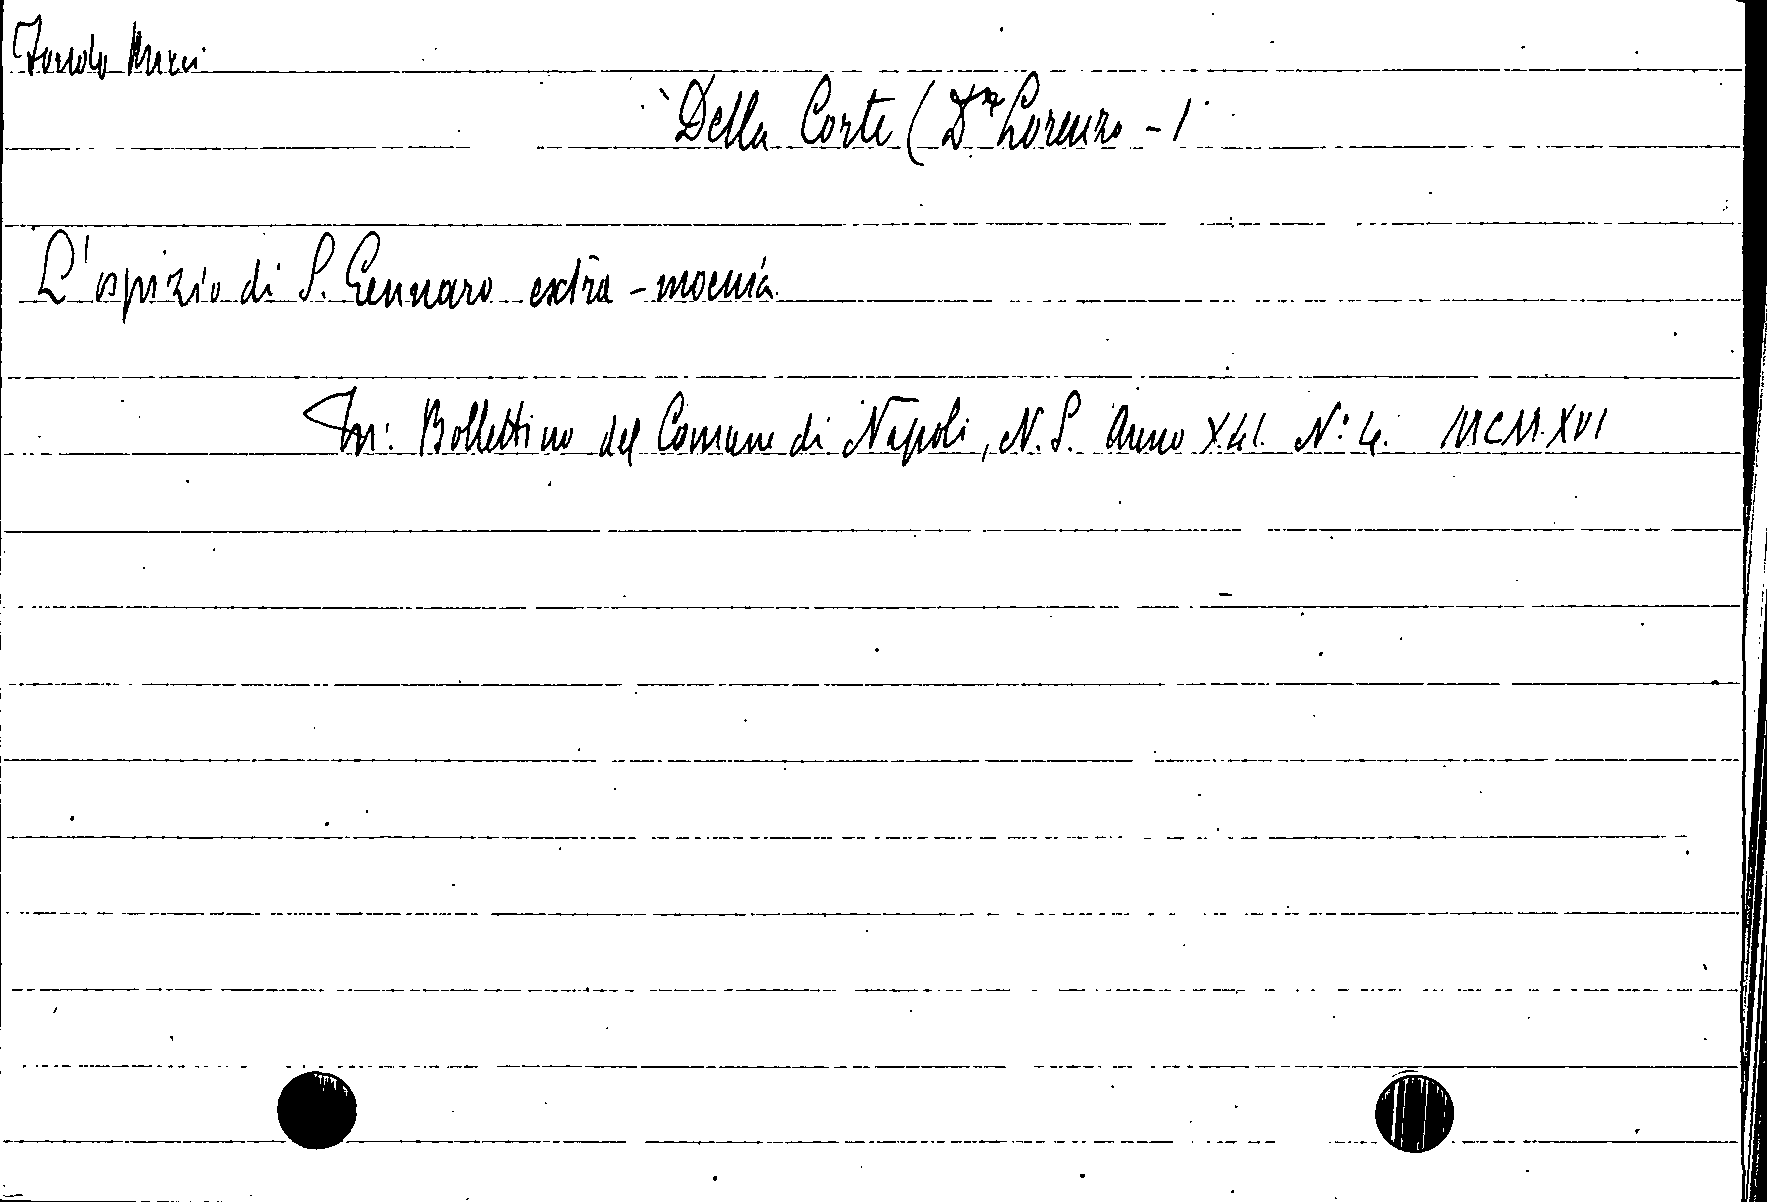 Fondo
Della Corte (D.r Lorenzo - )
L'ospizio di S. Gennaro extra-moenia.
In: Bollettino del Comune di Napoli, N.S. Anno XLI. N: 4. MCMXVI